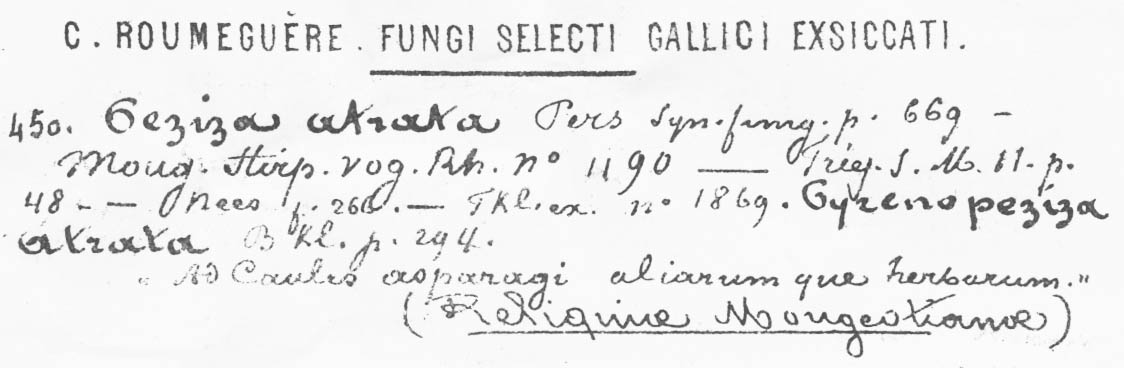 C. ROUMEGUÈRE. FUNGI SELECTI GALLICI EXSICCATI.
450. Peziza atrata Pers Syn. fung. p. 669 -
Moug. Stirp. vog. Rh. n° 1190 — Fries. S. M. 11. p.
48 - — Nees f. 266. — Fkl. ex. n° 1869. Pyrenopeziza
atrata Fkl. p. 294.
"Ad Caules asparagi aliarum que herbarum."
(Reliquiae Mougeotianae)